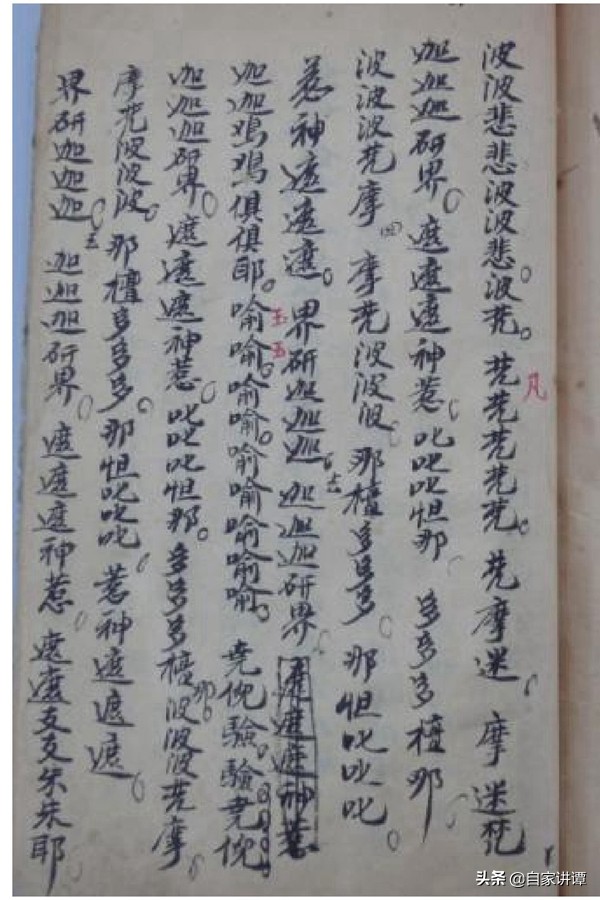 波波悲悲波波悲。波梵。梵梵梵梵梵。梵摩迷。摩迷梵
凡
迦迦迦研界。遮遮遮神惹。叱叱叱怛那。多多多檀那。
波波波梵摩。四 摩梵波波波。那檀多多多。那怛叱叱叱。
惹神遮遮遮。界研迦迦迦。迦迦迦研界。遮遮遮神惹
五五
迦迦鸡鸡俱俱耶。喻喻喻喻喻喻喻喻。堯倪驗。驗堯倪
迦迦迦研界。遮遮遮神惹。叱叱叱怛那。多多多檀那波波波梵摩。
摩梵波波波。那檀多多多。那怛叱叱叱。惹神遮遮遮。
界研迦迦迦。迦迦迦研界。遮遮遮神惹。遮遮支支朱朱耶
头条 @自家讲谭